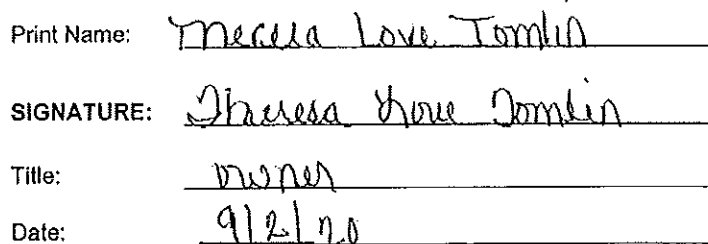 Print Name: Theresa Love Tomlin
SIGNATURE: Theresa Love Tomlin
Title: owner
Date: 9/2/20